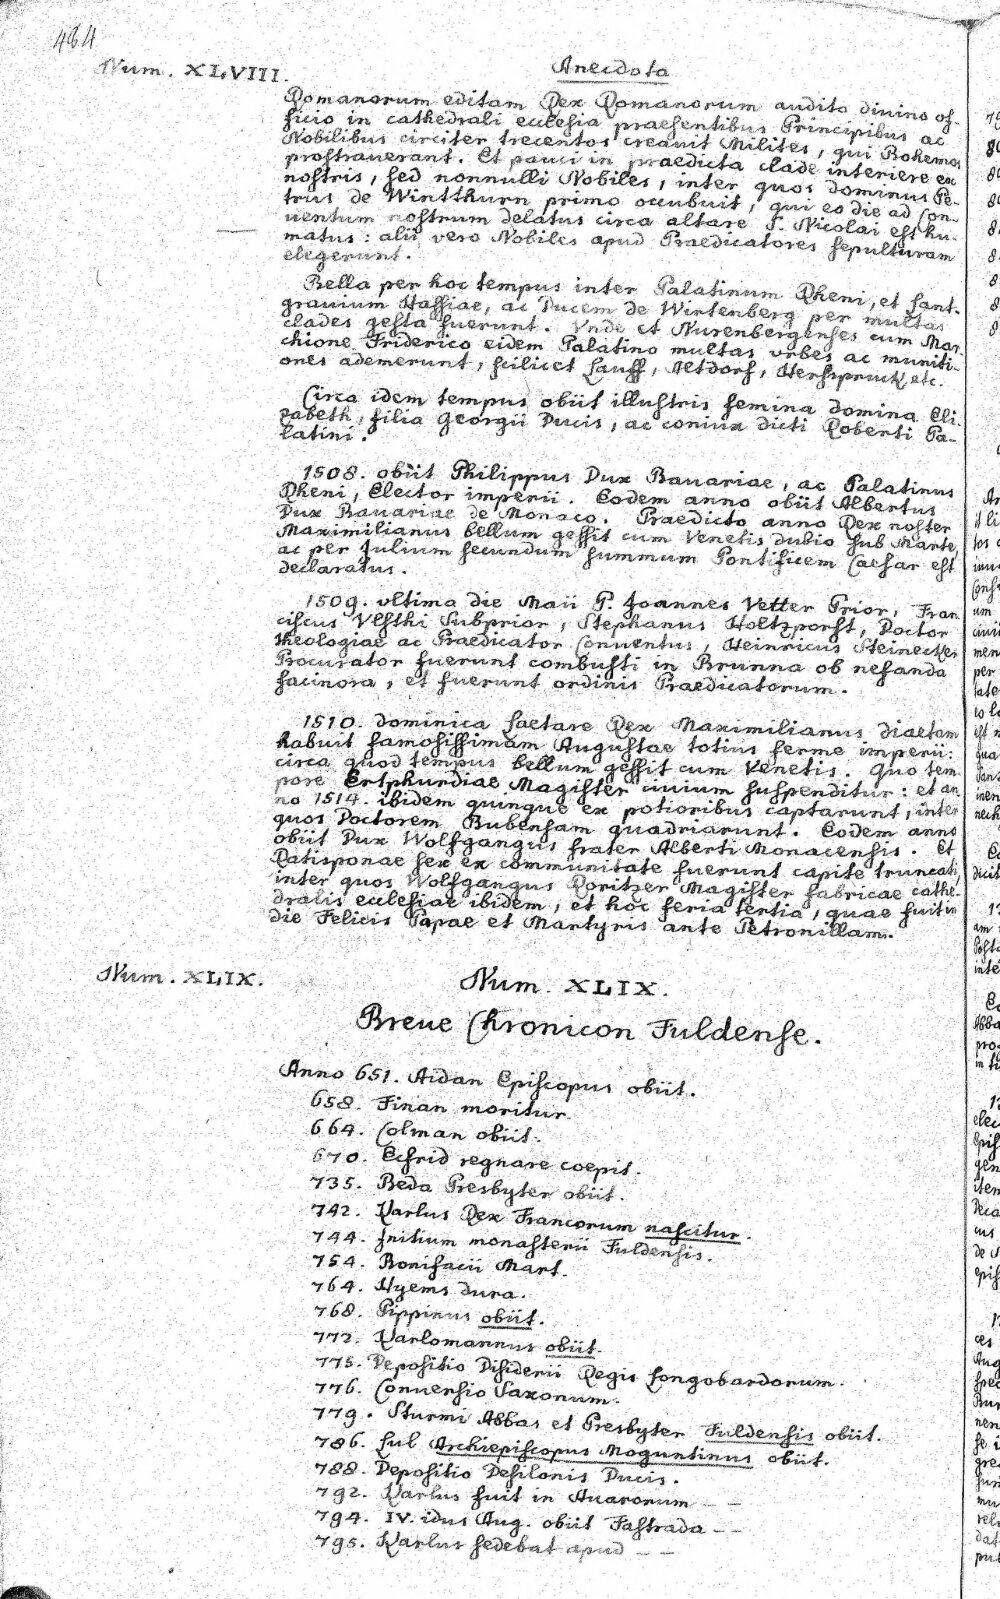 484
Num. XLVIII. Anecdota
Romanorum editam Rex Romanorum audito divino of-
ficio in cathedrali ecclesia praesentibus Principibus ac
Nobilibus circiter trecentos creavit Milites, qui Bohemos
prostraverant. Et pauci in praedicta clade interiere ex
nostris, sed nonnulli Nobiles, inter quos dominus Pe-
trus de Wintthurn primo occubuit, qui eo die ad Con-
uentum nostrum delatus circa altare S. Nicolai est hu-
matus: alii vero Nobiles apud Praedicatores sepulturam
elegerunt.
Bella per hoc tempus inter Palatinum Rheni, et Lant-
grauium Hassiae, ac Ducem de Wirtenberg per multas
clades gesta fuerunt. Vnde et Nurenbergenses cum Mar-
chione Friderico eidem Palatino multas vrbes ac muniti-
ones ademerunt, scilicet Lauff, Altdorf, Herspruck etc.
Circa idem tempus obiit illustris femina domina Eli-
zabeth, filia Georgii Ducis, ac coniux dicti Roberti Pa-
latini.
1508. obiit Philippus Dux Bauariae, ac Palatinus
Rheni, Elector imperii. Eodem anno obiit Albertus
Dux Bauariae de Monaco. Praedicto anno Rex noster
Maximilianus bellum gessit cum Venetis dubio sub Marte,
ac per Julium secundum summum Pontificem Caesar est
declaratus.
1509. vltima die Maii P. Joannes Vetter Prior, Fran-
ciscus Vlsthi Subprior, Stephanus Holtzporst, Doctor
theologiae ac Praedicator Conventus, Heinricus Steinecker
Procurator fuerunt combusti in Brunna ob nefanda
facinora, et fuerunt ordinis Praedicatorum.
1510. dominica Laetare Rex Maximilianus diaetam
habuit famosissimam Augustae totius ferme imperii:
circa quod tempus bellum gessit cum Venetis. Quo tem-
pore Ertphurdiae Magister ciuium suspenditur: et an-
no 1514. ibidem quinque ex potioribus captarunt, inter
quos Doctorem Bubensam quadriarunt. Eodem anno
obiit Dux Wolfgangus frater Alberti Monacensis. Et
Ratisponae sex ex communitate fuerunt capite truncati,
inter quos Wolfgangus Roritzer Magister fabricae cathe-
dralis ecclesiae ibidem, et hoc feria tertia, quae fuit in
die Felicis Papae et Martyris ante Petronillam.
Num. XLIX. Num. XLIX.
Breue Chronicon Fuldense.
Anno 651. Aidan Episcopus obiit.
658. Finan moritur
664. Colman obiit.
670. Ecfrid regnare coepit.
735. Beda Presbyter obiit.
742. Karlus Rex Francorum nascitur.
744. Initium monasterii Fuldensis.
754. Bonifacii Mart.
764. Hyems dura.
768. Pippinus obiit.
772. Karlomannus obiit.
775. Depositio Disiderii Regis Longobardorum.
776. Conuersio Saxonum.
779. Sturmi Abbas et Presbyter Fuldensis obiit.
786. Lul Archiepiscopus Moguntinus obiit.
788. Depositio Desilonis Ducis.
792. Karlus fuit in Auaronum – –
794. IV. idus Aug. obiit Fastrada – –
795. Karlus sedebat apud – –